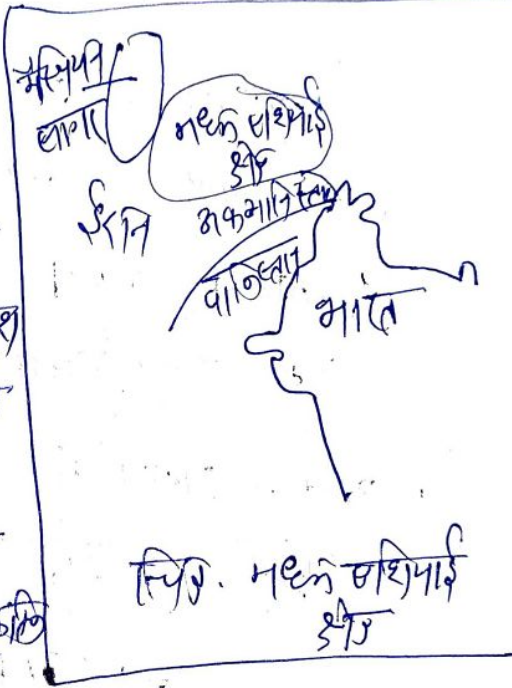 कैस्पियन
सागर
मध्य एशियाई
क्षेत्र
ईरान
अफगानिस्तान
पाकिस्तान
भारत
चित्र. मध्य एशियाई
क्षेत्र